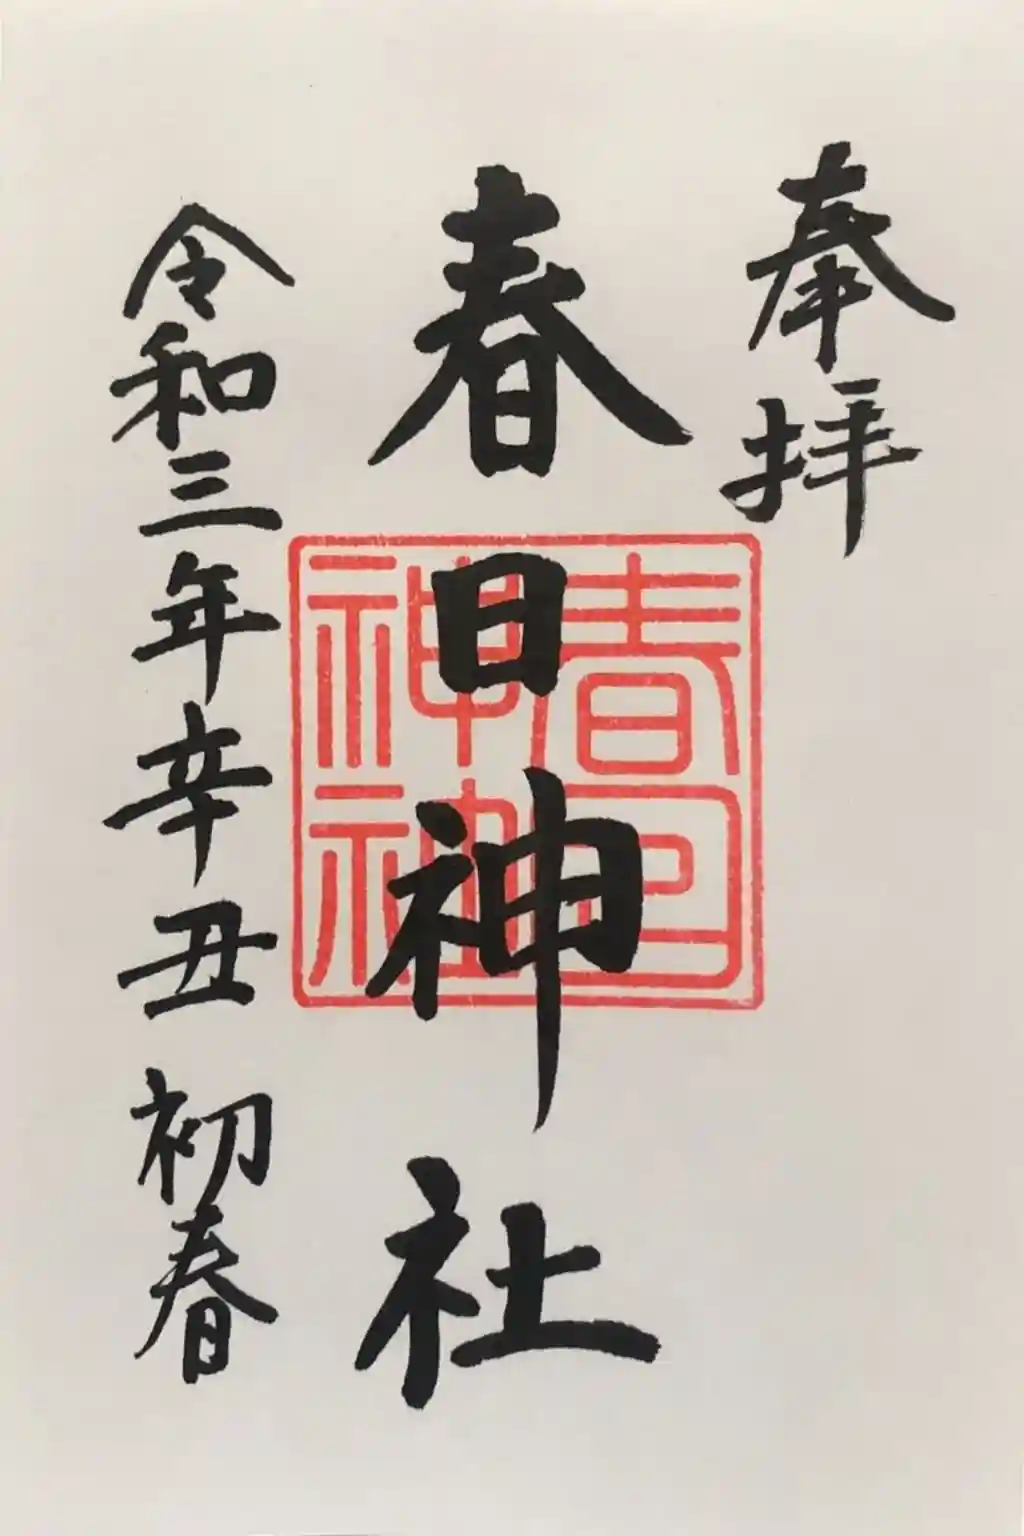 奉拝
春日神社
春日
神社
令和三年辛丑 初春